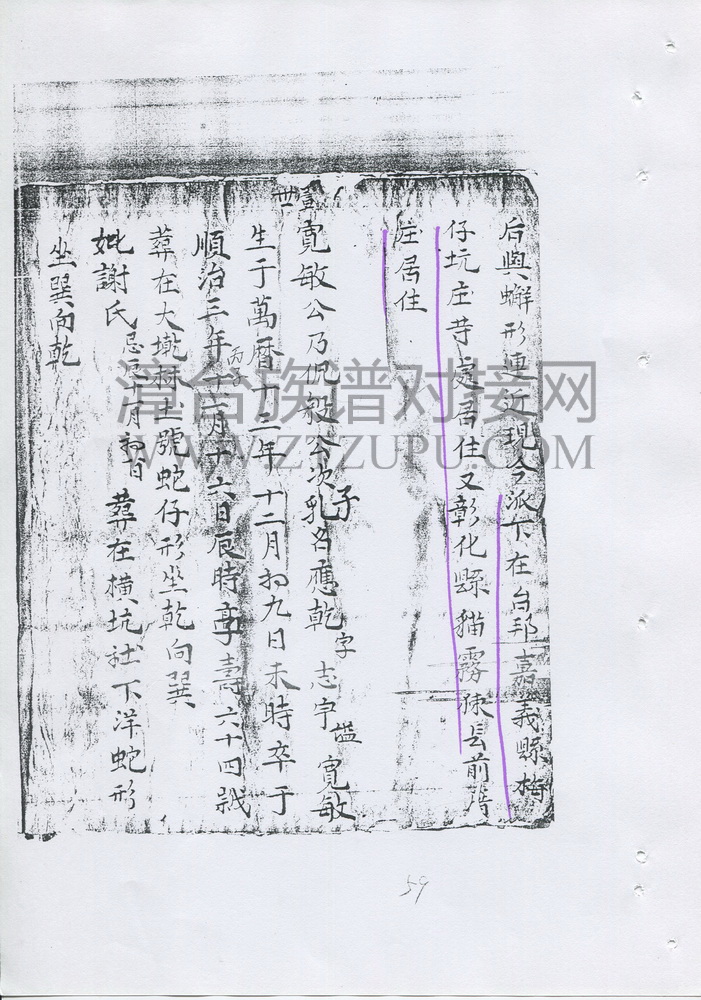 后與蠏形連近現今派下在台邦嘉義縣梅
仔坑庄等處居住又彰化縣貓霧捒長前厝
庄居住
世
寬敏公乃侃毅公次子乳名應乾字志宇謚寬敏
生于萬曆十二年十二月初九日未時卒于
順治三年丙十二月十六日辰時享壽六十四歲
葬在大墘林土號蛇仔形坐乾向巽
妣謝氏忌辰十月初日葬在橫坑社下洋蛇形
坐巽向乾
漳台族谱对接网
WWW.ZTZUPU.COM
59